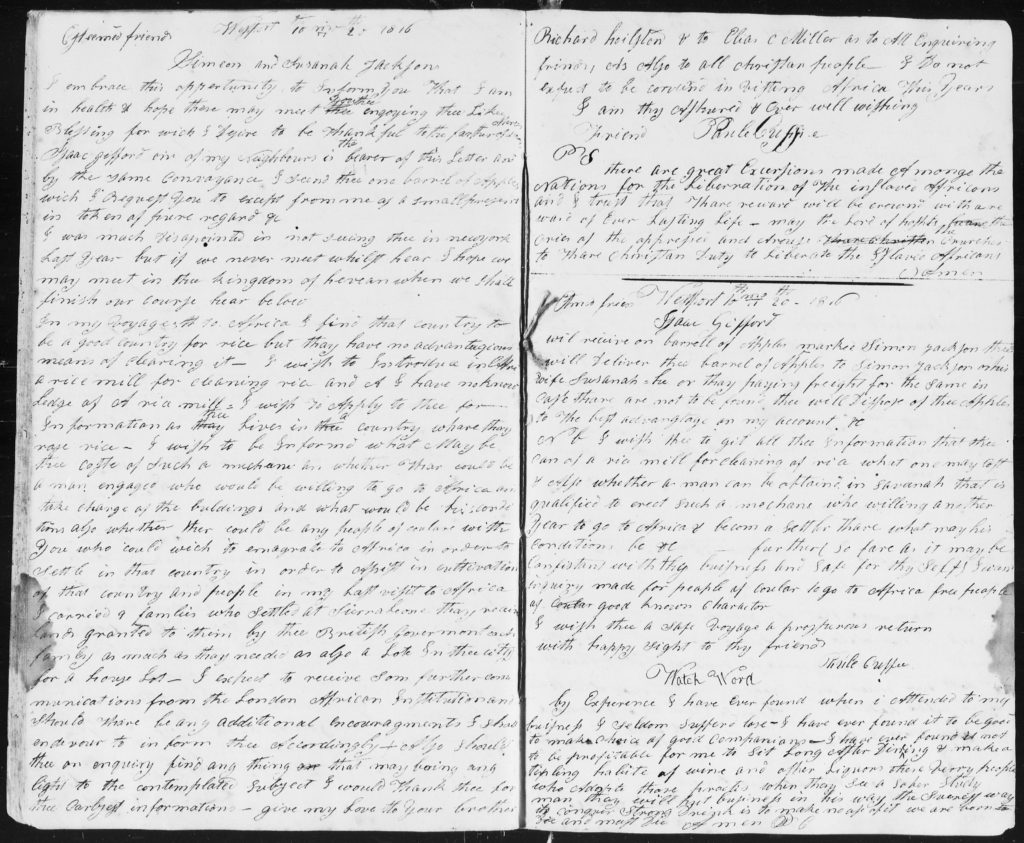 Esteemed friends Westport 10 mo 20th 1816
Simeon and Susanah Jackson
I embrace this oppertunity to Inform You That I am
in health & hope these may meet thee enjoying the Like
Blessing for wich I Desire to be thankful to the farther of
Isaac gifford oin of my Neighbours is the bearer of this Letter and
by the same Convayance I Seend thee one barrel of Apples
wich I Request You to except from me as a small present
in token of pure regard &c
I was much disapointed in not seeing thee in newyork
Last Year but if we never meet whilst hear I hope we
may meet in the Kingdom of heevean when we shall
finish our Course hear below
In my Voyages to Africa I find that country to
be a good Country for rice but thay have no advantagious
means of Clearing it – I wish to Introduce in
a rice mill for cleaning rice and A I have no know
ledge of A rice mill – I wish to Apply to thee for
Information as thee lives in a Country whare thay
rase rice – I wish to be Informd what May be
thee coste of Such a mechane an whether thar could be
a man engaged who would be willing to go to Africa an
take Charge of the buildings and what would be his condi
tions also whether ther could be any people of coulure with
You who would wich to emagrate to Africa in order to
Settle in that country in order to Assist in cultervation
of that country and people in my last visit to Africa
I carried 9 familis who settled at Sierra leone they receiv
Lands granted to them by thee British Goverment each
family as much as thay needed as also a Lote In thee city
for a house Lot – I expect to receive Som further com
munications from the London African Institutionan
Should thare be any additional encouragments I shall
endevour to in form thee Accordingly – Also should
thee on enquiry find any thing that may bring any
light to the contemplated Subject I would thank thee for
thee Earlyest informations – give my love to Your brother
Richard and to Elias C Miller as to All Enquiring
frinds, As Also to all christian people – I Do not
expect to be in Vitting Africa This Years
I am thy Assured & Ever well wishing
Friend Paule Cuffee
PS
there are great Excersions made A monge the
Nations for the liberration of the inslaved Africans
and I trust that Thare reward will be crown with a re
ward of Ever Lasting Life – may the Lord of hosts the
Cries of the oppressed and arouse Churches
to Thare Christian Duty to Liberate the Slaved Africans
Amen
Westport 10th mo 20th – 1816
Isaac Gifford
will receive on barrell of Apples marked Simon Jackson thee
will Deliver thee barrel of Apples to Simon Jackson or his
wife Susanah he or thay paying freight for the same in
Case thare are not to be found thee will Dispose of thee Apples
to The best advangtage on my account &c
N B I wish thee to git all thee Information that thee
Can of a rice mill for cleaning of rice what one may cost
& Also whether a man can be obtaind in Savanah that is
qualified to erect Such a mechane who willing another
Year to go to Africa & becom a Settler thare what may his
Conditions be &c further So fare as it may be
Consistant with thy buisness and Safe for thy Self I want
inquiry made for people of Coular to go to Africa free people
of good Known Charactor
I wish thee a safe Voyage a prosperous return
with happy sight to thy friends
Paule Cuffee
Watch Word
by Experence I have Ever found when i Attended to my
buisness I Seldom Sufferd lose – I have ever found it to be good
to make choice of good Companions – I have ever found it not
to be profitable for me to Sit Long After Dining & make a
tipling habite of wine and other Liquors these Verry people
who those practis when thay See a Sober Study
man thay will put buisness in his way the Surest way
to conquer Strong Drink is to make no use of it we are born to
die and must die Amen P C